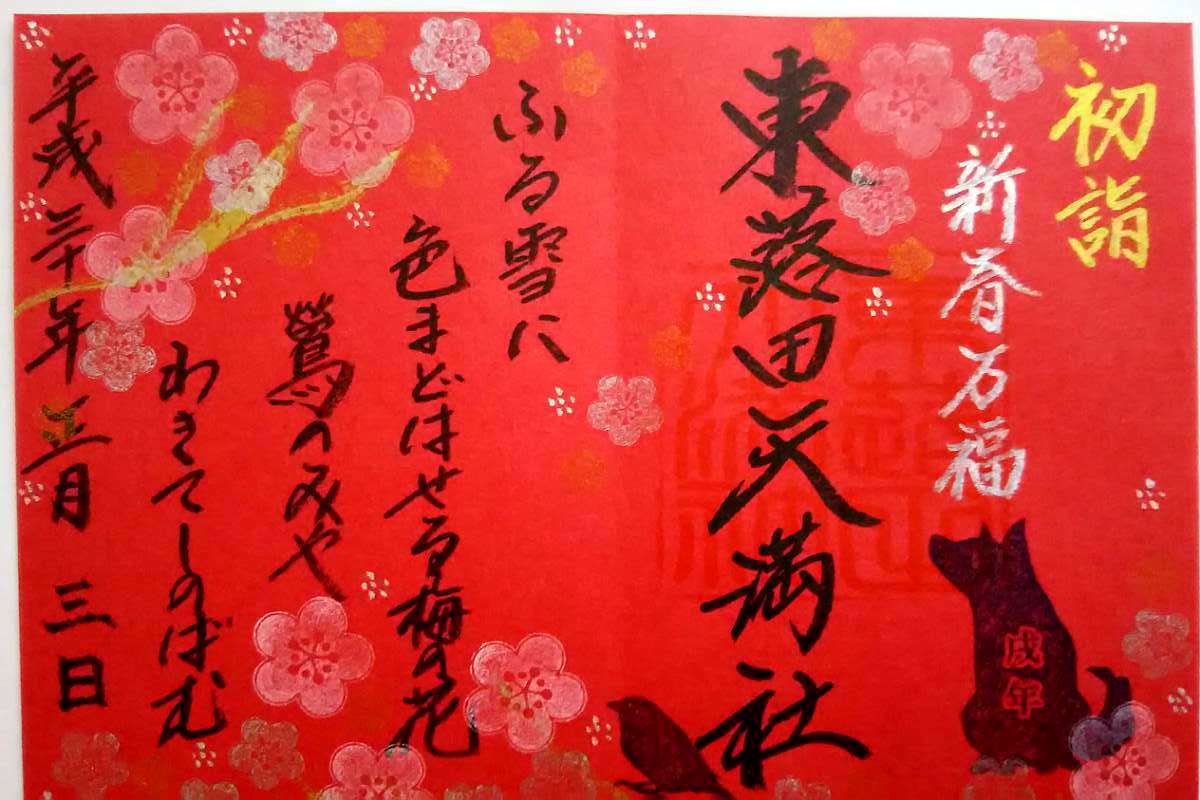 初詣
新春万福
戌年
東蕗田天満社
ふる雪に
色まどはせる梅の花
鶯のみや
わきてしのばむ
平成三十年 正月 三日